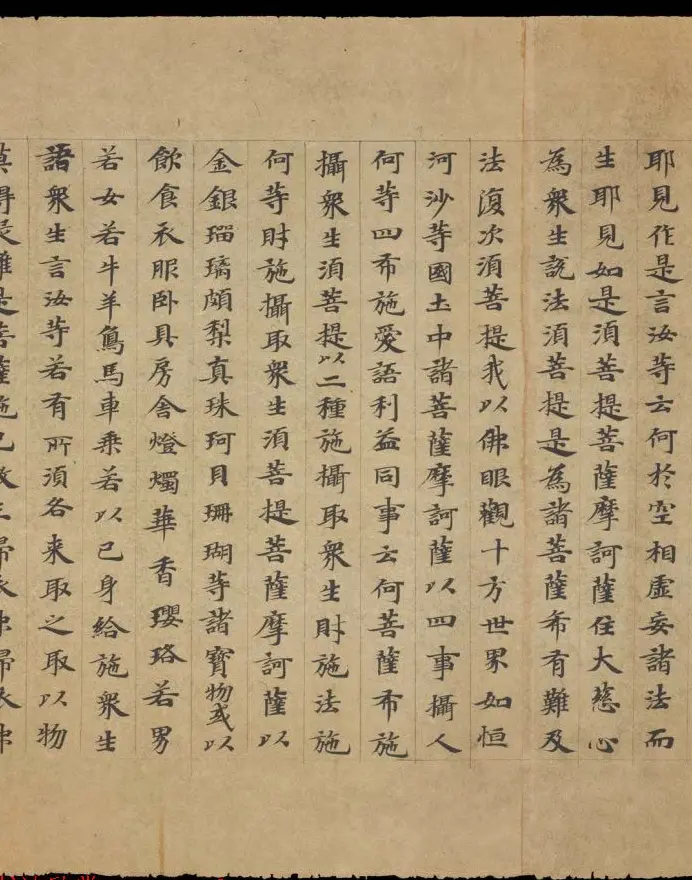 耶見作是言汝等云何於空相虛妄諸法而
生耶見如是須菩提菩薩摩訶薩住大慈心
為衆生說法須菩提是為諸菩薩希有難及
法復次須菩提我以佛眼觀十方世界如恒
河沙等國土中諸菩薩摩訶薩以四事攝人
何等四布施愛語利益同事云何菩薩布施
攝衆生須菩提以二種施攝取衆生財施法施
何等財施攝取衆生須菩提菩薩摩訶薩以
金銀瑠璃頗梨真珠珂貝珊瑚等諸寶物或以
飲食衣服卧具房舍燈燭華香瓔珞若男
若女若牛羊鳥馬車乘若以己身給施衆生
語衆生言汝等若有所須各来取之取以物